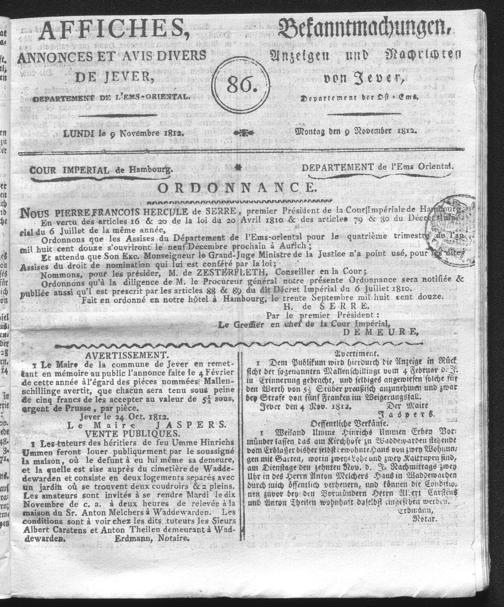 AFFICHES,
ANNONCES ET AVIS DIVERS
DE JEVER,
DEPARTEMENT DE L'EMS-ORIENTAL.
LUNDI le 9 Novembre 1812.
86.
Bekanntmachungen,
Anzeigen und Nachrichten
von Jever,
Departement der Ost-Ems.
Montag den 9 November 1812.
COUR IMPERIAL de Hambourg.
DEPARTEMENT de l'Ems Oriental.
ORDONNANCE.
NOUS PIERRE FRANCOIS HERCULE DE SERRE, premier Président de la Cour Impériale de Hambourg
En vertu des articles 16 & 20 de la loi du 20 Avril 1810 & des articles 79 & 80 du Décret
rial du 6 Juillet de la même année,
Ordonnons que les Assises du Département de l'Ems-oriental pour le quatrième trimestre
mil huit cent douze s'ouvriront le neuf Décembre prochain à Aurich;
Et attendu que Son Exc. Monseigneur le Grand-Juge Ministre de la Justice n'a point usé, pour les dites
Assises du droit de nomination qui lui est conféré par la loi;
Nommons, pour les présider, M. DE ZESTERFLETH, Conseiller en la Cour;
Ordonnons qu'à la diligence de M. le Procureur général notre présente Ordonnance sera notifiée &
publiée aussi qu'il est prescrit par les articles 88 & 89 du dit Décret Impérial du 6 Juillet 1810.
Fait en ordonné en notre hôtel à Hambourg, le trente Septembre mil huit cent douze.
H. de SERRE.
Par le premier Président:
Le Greffier en chef de la Cour Impérial,
DEMEURE,
AVERTISSEMENT.
1 Le Maire de la commune de Jever en remet-
tant en mémoire au public l'annonce faite le 4 Février
de cette année à l'égard des pièces nommées Mallen-
schillinge avertit, que chacun sera tenu sons peine
de cinq francs de les accepter au valeur de 5½ sous,
argent de Prusse, par pièce.
Jever le 24 Oct. 1812.
Le Maire JASPERS.
VENTE PUBLIQUES.
1 Les tuteurs des héritiers de feu Umme Hinrichs
Ummen feront louer publiquement par le soussigné
la maison, où le défunt à eu lui même sa demeure,
et la quelle est sise auprès du cimetière de Wadde-
dewarden et consiste en deux logements separés avec
un jardin où se trouvent deux coudroirs & 2 pleins.
Les amateurs sont invités à se rendre Mardi le dix
Novembre de c. a. à deux heures de relevée à la
maison du Sr. Anton Melchers à Waddewarden. Les
conditions sont à voir chez les dits tuteurs les Sieurs
Albert Carstens et Anton Theilen demeurant à Wad-
dewarden. Erdmann, Notaire.
Avertissement.
1 Dem Publikum wird hierdurch die Anzeige in Rück
sicht der sogenannten Mallenschillings vom 4 Februar d. J.
in Erinnerung gebracht, und selbiges angewiesen solche für
den Werth von 5½ Stüber preußisch anzunehmen und zwar
bey Strafe von fünf Franken im Weigerungsfall.
Jever den 4 Nov. 1812. Der Maire
Jaspers.
Oeffentliche Verkäufe.
1 Weiland Umme Hinrichs Ummen Erben Vor-
münder lassen das am Kirchhofe zu Waddewarden stehende
vom Erblasser bisher selbst bewohnte Haus von zwey Wohnungen
mit Garten, worin zwey
am Dienstage den zehnten Nov. d. J. Nachmittags zwey
Uhr in des Herrn Anton Melchers Haus in Waddewarden
durch mich öffentlich verheuern, und können die Conditio-
nen zuvor bey den Vormündern Herrn Albert Carstens
und Anton Theilen wohnhaft daselbst eingesehen werden.
Erdmann,
Notar.